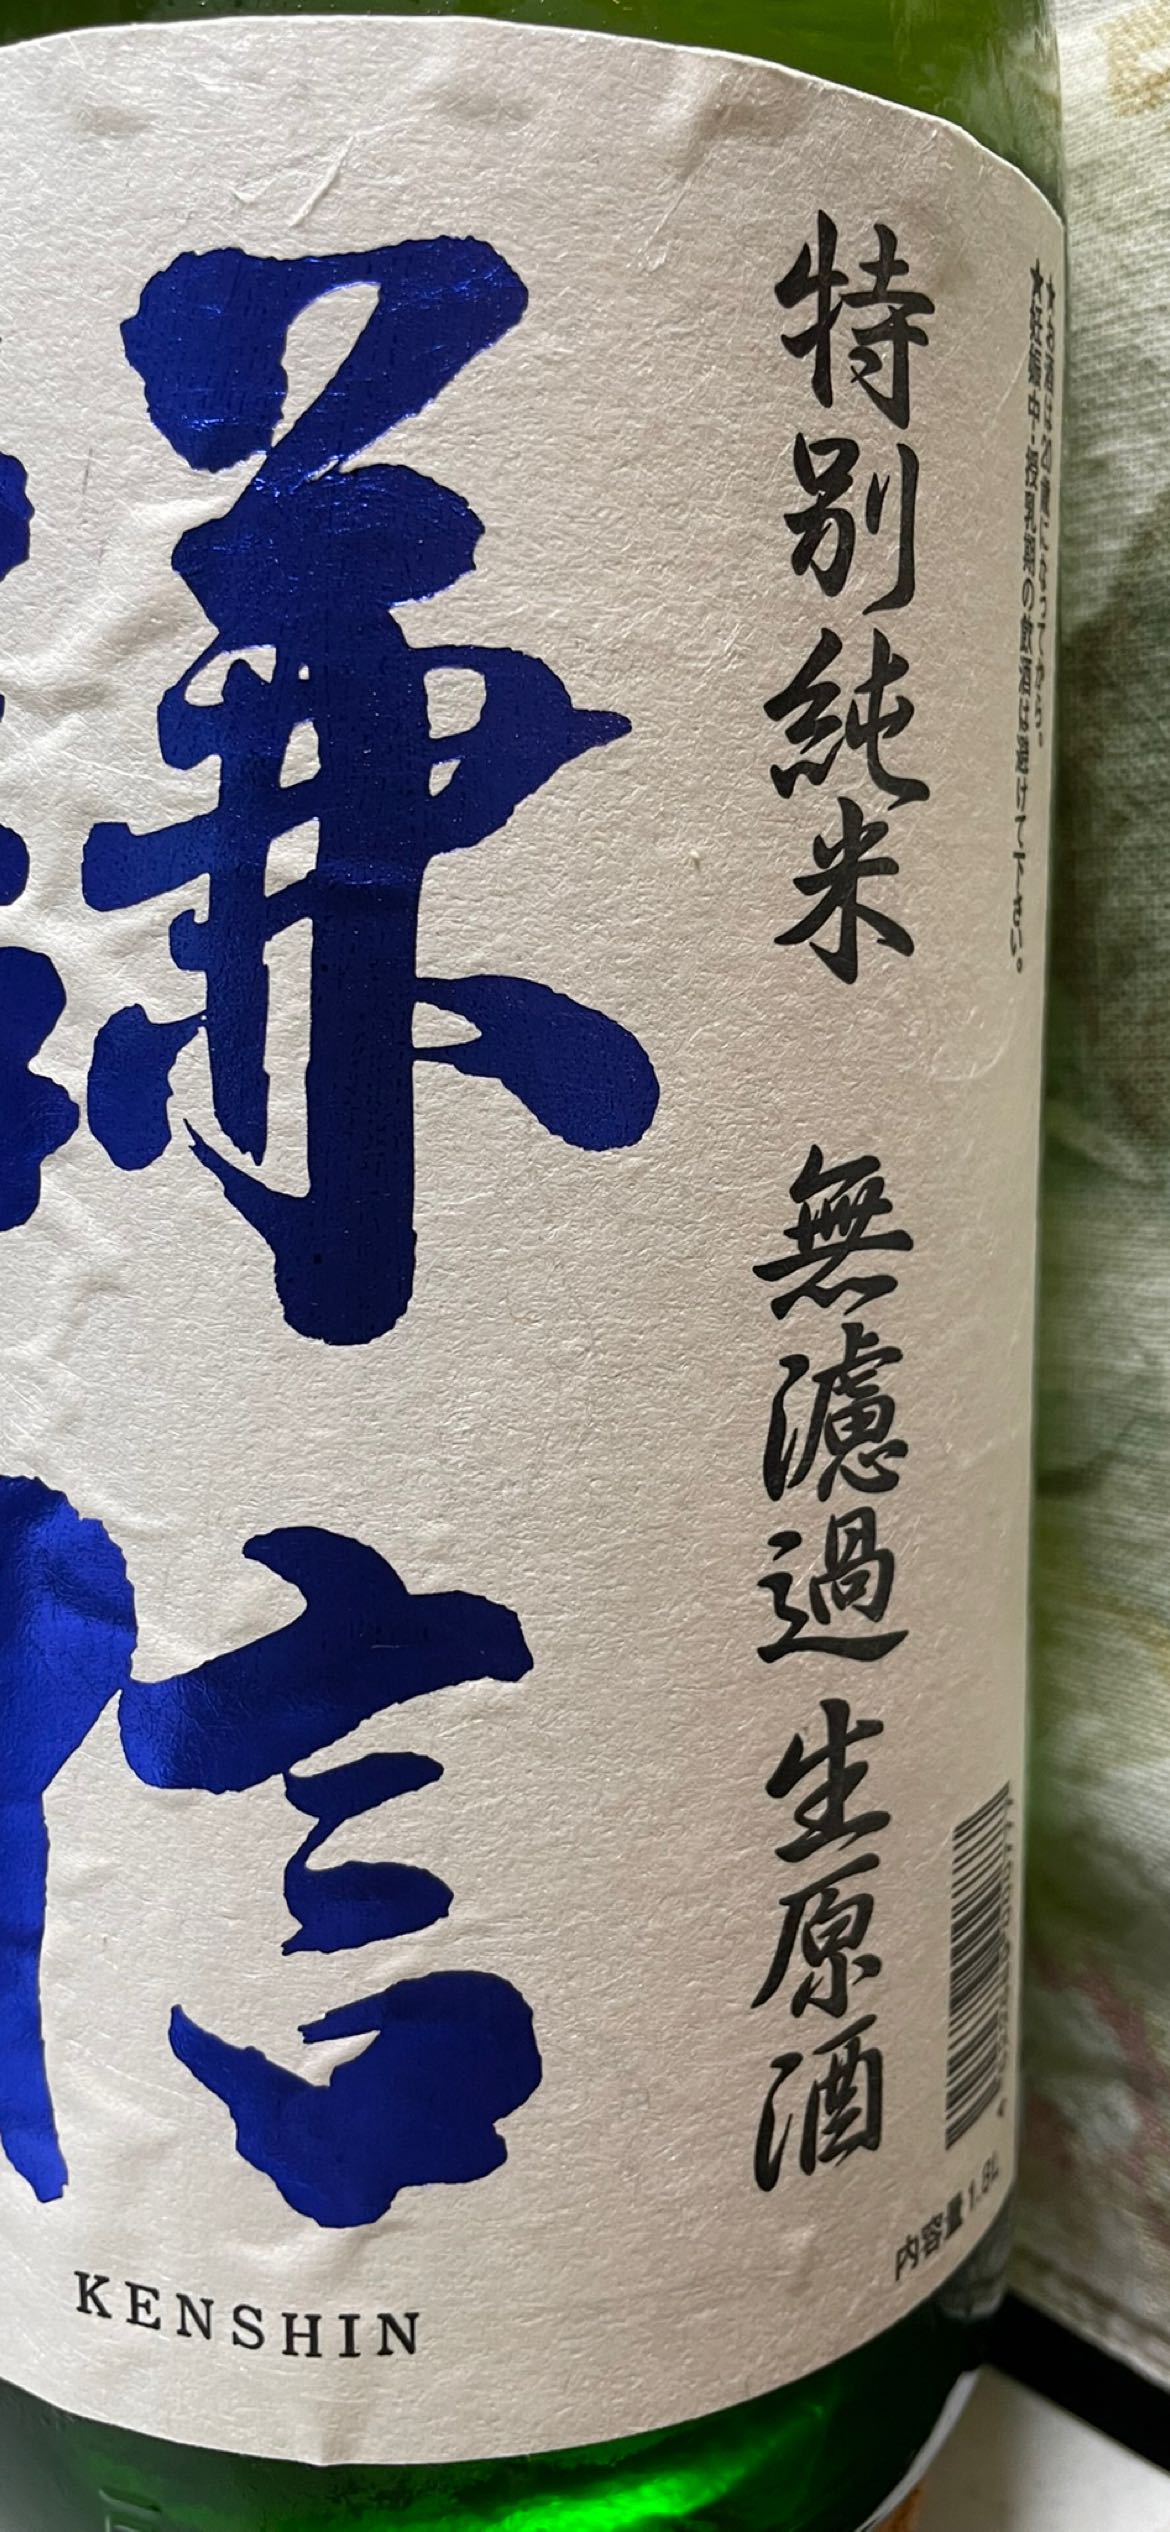 ★お酒は20歳になってから。
★妊娠中・授乳期の飲酒は避けて下さい。
特別純米 無濾過生原酒
謙信
KENSHIN
内容量1.8L